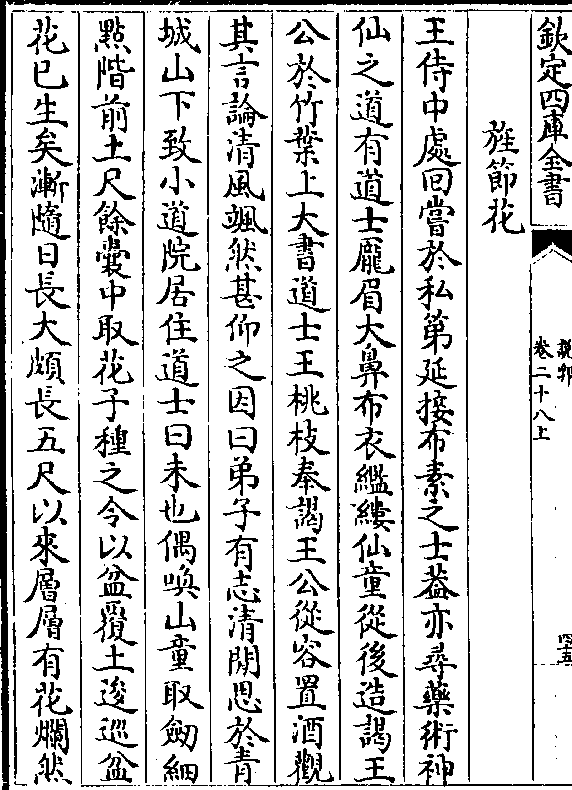 欽定四庫全書
說郛
卷二十八上
四十五
旌節花
王侍中處回嘗於私第延接布素之士葢亦尋藥術神
仙之道有道士厖眉大鼻布衣繿縷仙童從後造謁王
公於竹葉上大書道士王桃枝奉謁王公從容置酒觀
其言論清風颯然甚仰之因曰弟子有志清閒思於青
城山下致小道院居住道士曰未也偶喚山童取劒細
點階前土尺餘囊中取花子種之令以盆覆土逡巡盆
花已生矣漸隨日長大頗長五尺以來層層有花爛然